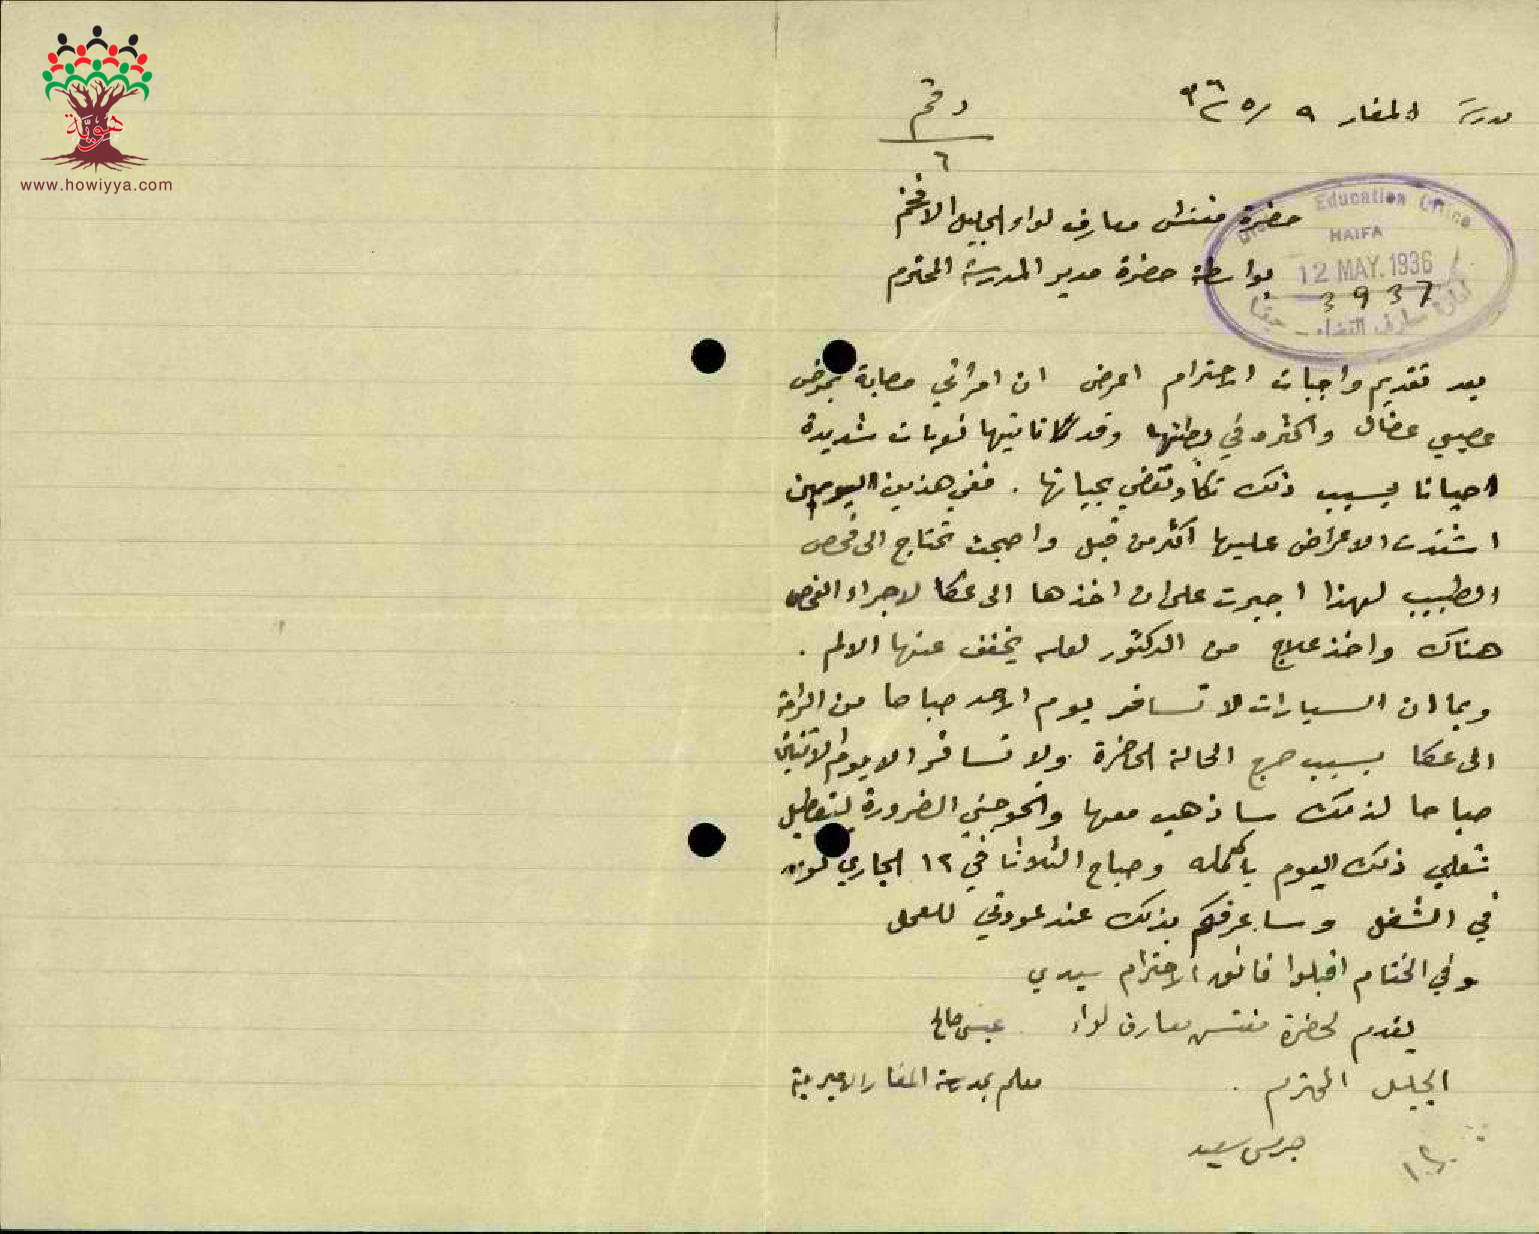 هوية
www.howiyya.com
مدرسة المغار ٩ /٥ ٣٦
رقم
٦
حضرة مفتش معارف لواء الجليل الافخم
بواسطة حضرة مدير المدرسة المحترم
Education Office
HAIFA
12 MAY. 1936
3937
معارف القضاء - حيفا
بعد تقديم واجبات الاحترام اعرض ان امرأتي مصابة بمرض
عصبي عضال واكثره في بطنها وقد تأتيها نوبات شديدة
احيانا بسبب ذلك تكاد تقضي بحياتها . ففي هذين اليومين
اشتدت الاعراض عليها اكثر من قبل واصبحت تحتاج الى فحص
الطبيب لهذا اجبرت على ان اخذها الى عكا لاجراء الفحص
هناك واخذ علاج من الدكتور لعله يخفف عنها الالم .
وبما ان السيارات لا تسافر يوم الاحد صباحا من الرامة
الى عكا بسبب حرج الحالة الحاضرة ولا تسافر الا يوم الاثنين
صباحا لذلك ساذهب معها واحوجتني الضرورة لتعطيل
شغلي ذلك اليوم باكمله وصباح الثلاثا في ١٢ الجاري اكون
في الشغل وساعرفكم بذلك عند عودتي للعمل
وفي الختام اقبلوا فائق الاحترام سيدي
يقدم لحضرة مفتش معارف لواء
عيسى صالح
الجليل المحترم .
معلم بمدرسة المغار الاميرية
جريس سعيد